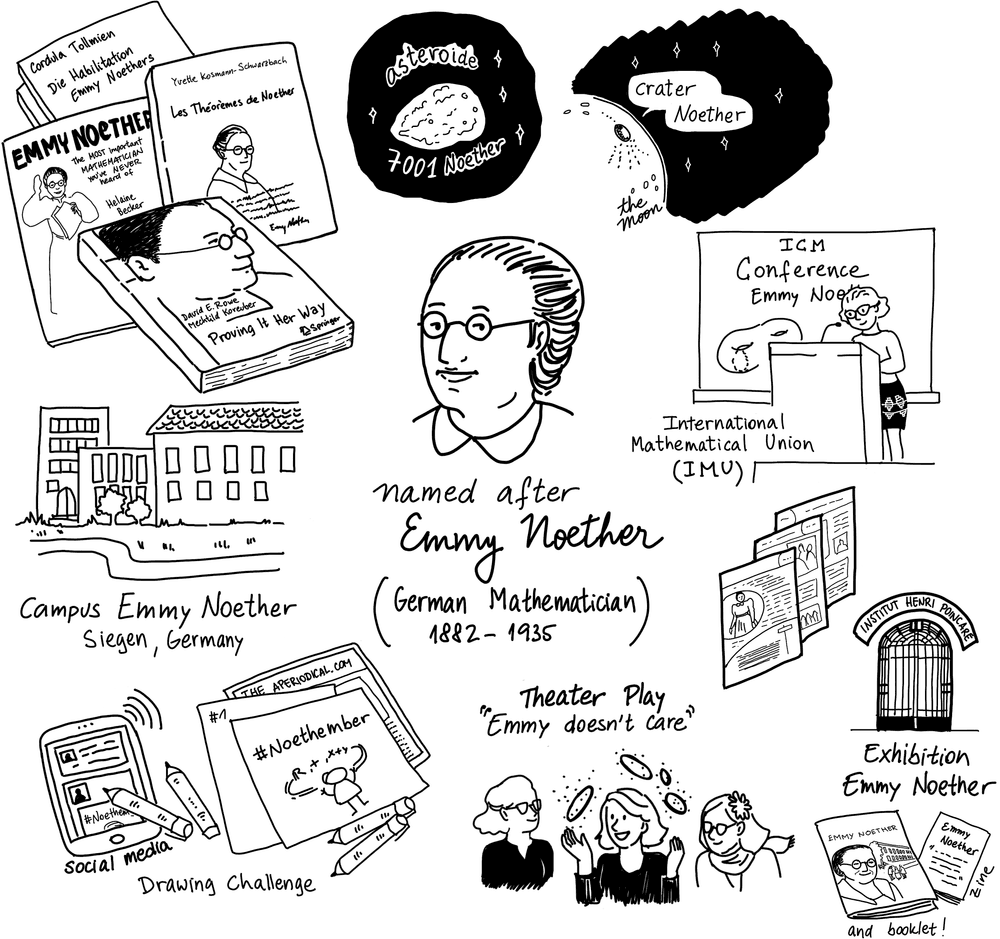 Cordula Tollmien
Die Habilitation
Emmy Noethers
Yvette Kosmann-Schwarzbach
Les Théorèmes de Noether
Emmy Noether
EMMY NOETHER
The MOST Important
MATHEMATICIAN
you've NEVER
heard of
Helaine
Becker
David E. Rowe
Mechthild Koreuber
Proving It Her Way
Springer
asteroide
7001 Noether
crater
Noether
the
moon
ICM
Conference
Emmy Noeth
International
Mathematical Union
(IMU)
named after
Emmy Noether
(German Mathematician)
1882 - 1935
Campus Emmy Noether
Siegen, Germany
THE APERIODICAL.COM
#1
#Noethember
R, +, x+y
#Noethem
social media
Drawing Challenge
Theater Play
"Emmy doesn't care"
INSTITUT HENRI POINCARÉ
Exhibition
Emmy Noether
EMMY NOETHER
Emmy
Noether
Zine
and booklet!